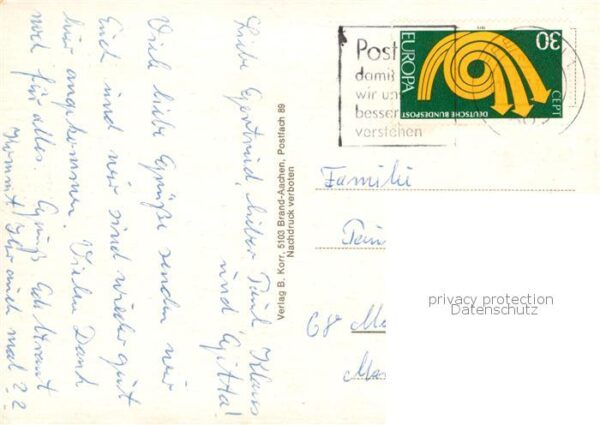 Liebe Gertrud, lieber Paul Klaus
und Gitta!
Viele liebe Grüße senden wir
Euch und wir sind wieder gut
hier angekommen. Vielen Dank
noch für alles. Gruß
Kommt Ihr auch mal??
Verlag B. Korr, 5103 Brand-Aachen, Postfach 89
Nachdruck verboten
Post
damit
wir un
besser
verstehen
30
EUROPA
CEPT
DEUTSCHE BUNDESPOST
Familie
68 Ma
Ma
privacy protection
Datenschutz